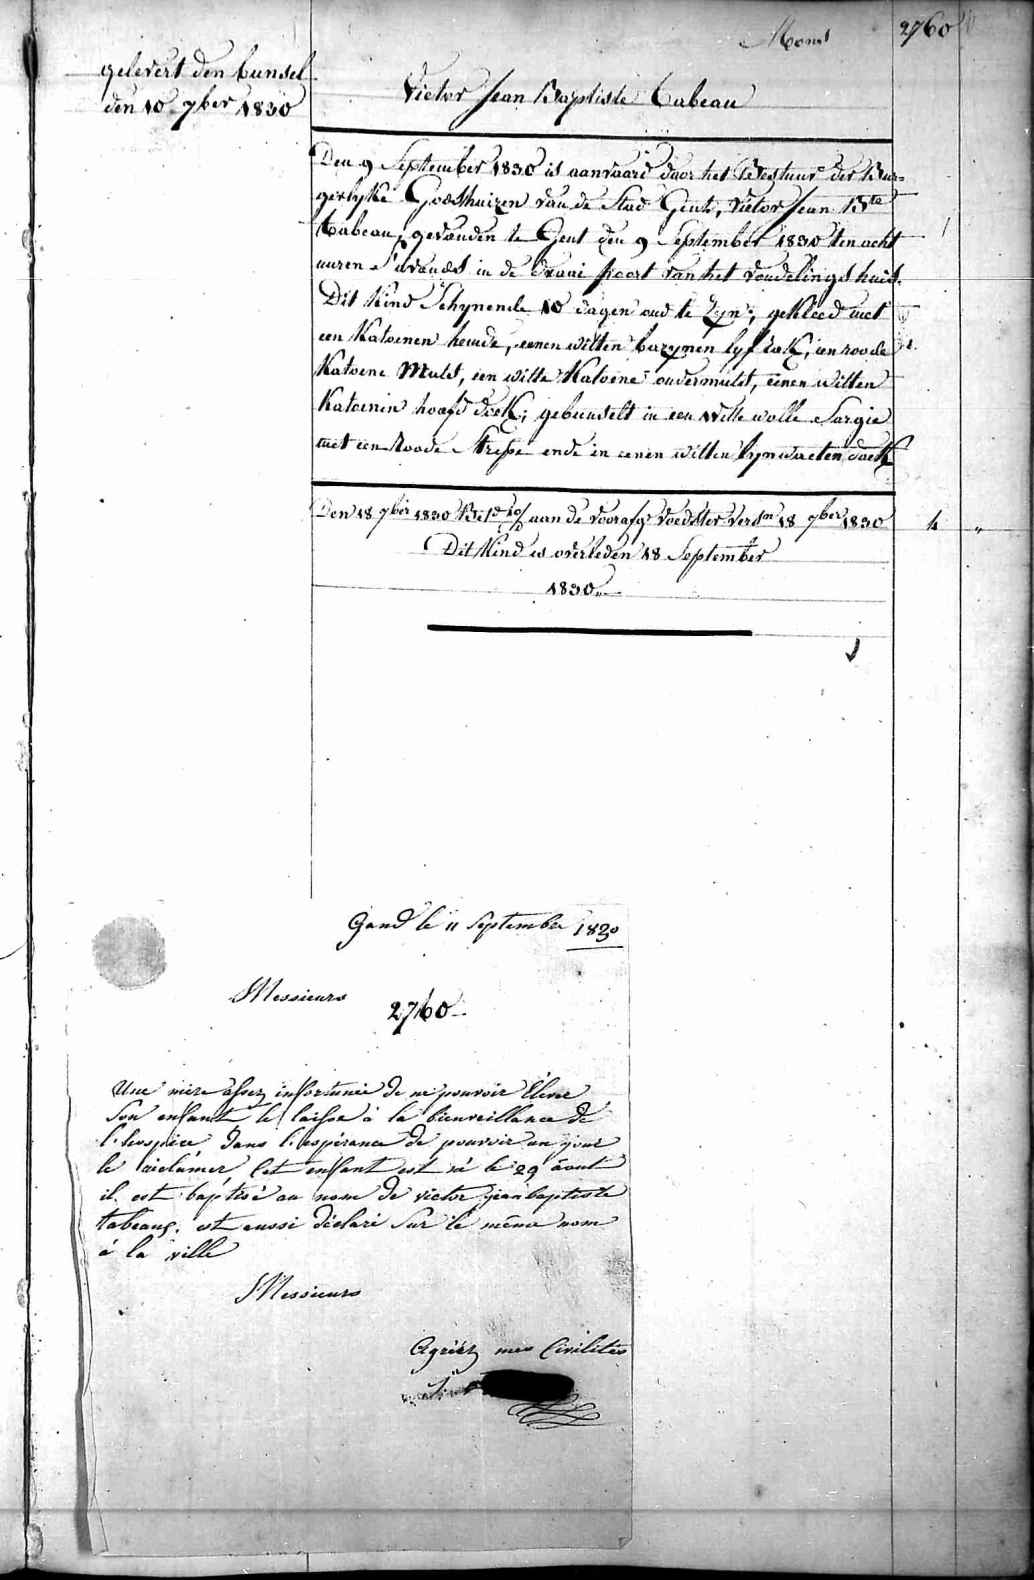 2760
gelevert den bunsel
den 10 7ber 1830
Victor Jean Baptiste Tabeau
Den 9 September 1830 is aanvaard door het Bestuur der Bur=
gerlyke Godshuizen van de Stad Gent, Victor Jean Bte
Tabeau, gevonden te Gent den 9 September 1830 ten acht
uuren s'avonds in de draai poort van het vondelings huis.
Dit Kind Schynende 10 dagen oud te Zyn; gekleed met
een Katoenen hemde, eenen witten bazynen lyf rok, een roode
Katoene Muts, een witte Katoene ondermuts, eenen witten
Katoenen hoofd doek; gebunselt in een witte wolle Sargie
met een Roode Strepe ende in eenen witten lynwaeten doek
Den 18 7ber 1830 aan de voorafge voedster 18 7ber 1830
4 "
Dit Kind is overleden 18 September
1830
Gand le 11 Septembre 1830
Messieurs
2760
Une mère assez infortunée de ne pouvoir Elever
Son enfant le laisse à la bienveillance de
l'hospice dans l'espérance de pouvoir un jour
le réclamer Cet enfant est né le 29 aout
il est baptisé au nom de victor jean baptiste
tabeaux. et aussi déclaré Sur le même nom
à la ville
Messieurs
Agréez mes Civilités